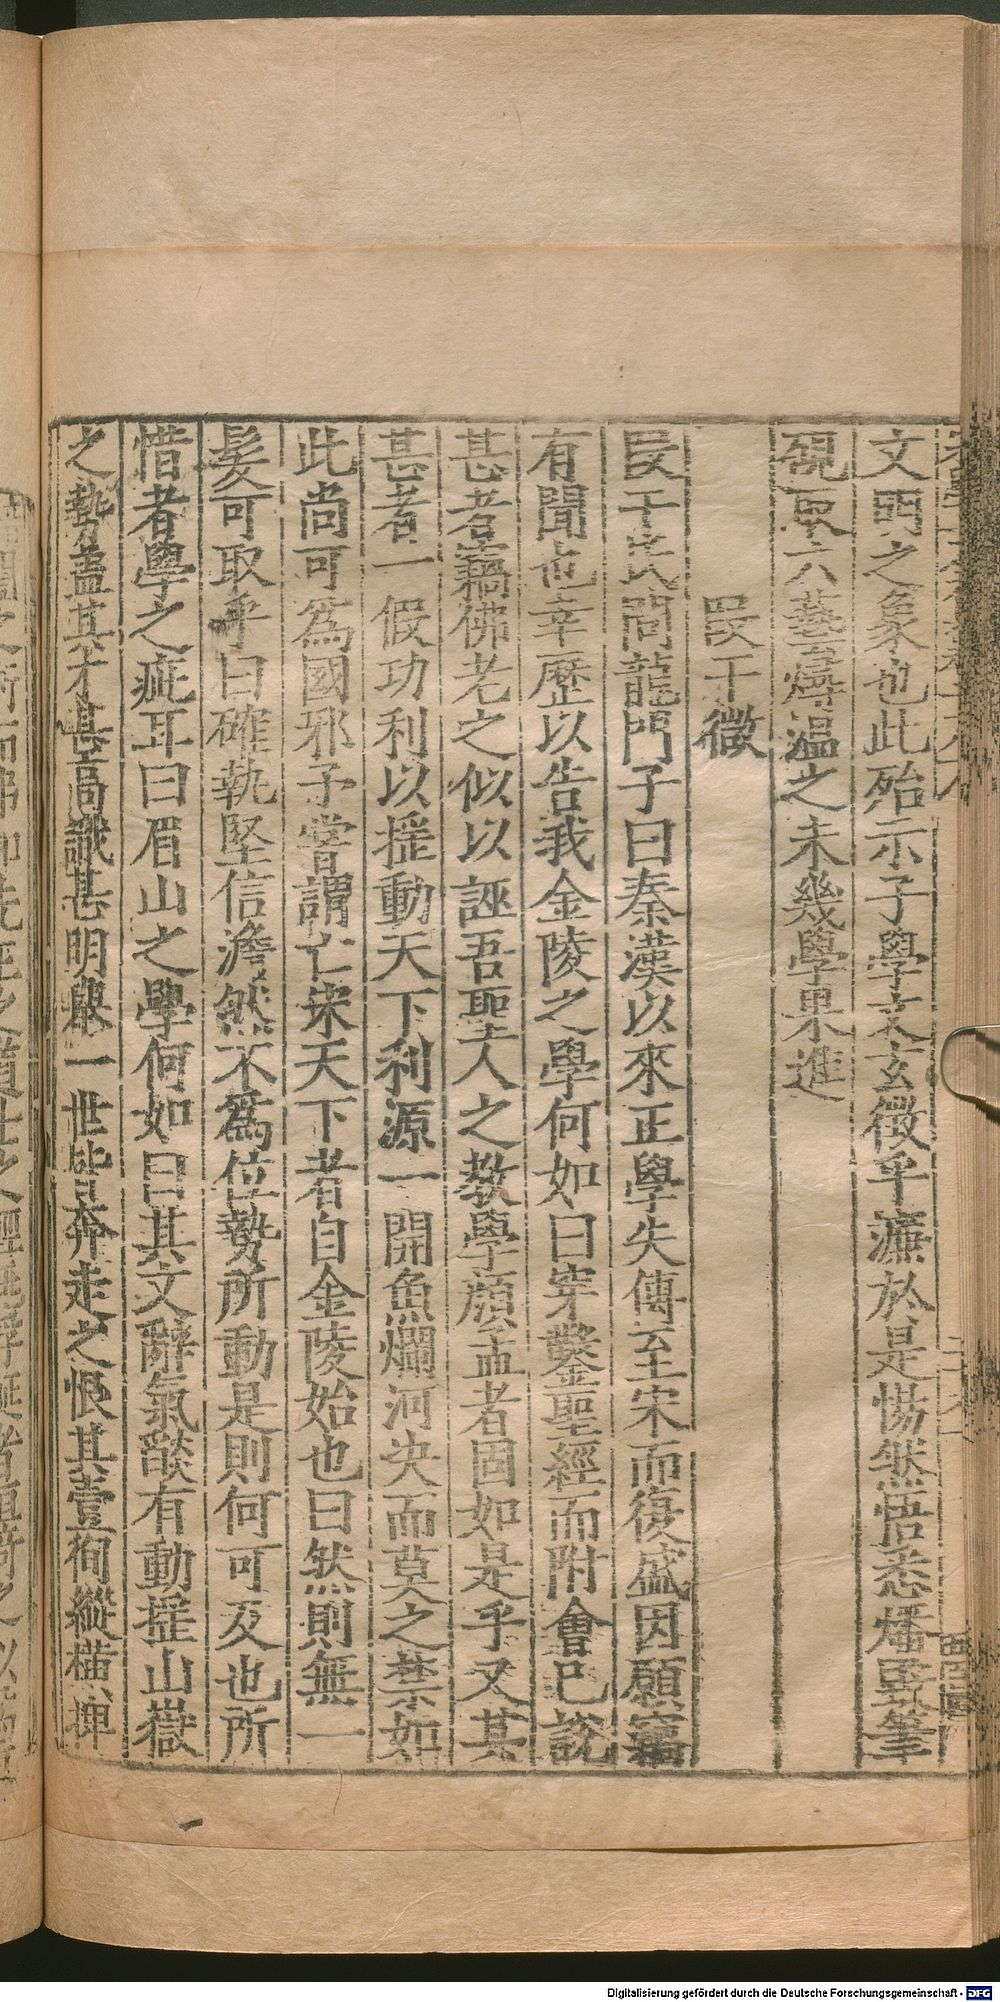 文明之象也此殆示子學文玄徵乎濂於是惕然悟悉燔毀筆
硯取六藝燖溫之未幾學果進
段干微
段干氏問龍門子曰秦漢以來正學失傳至宋而復盛因願竊
有聞也幸歷以告我金陵之學何如曰穿鑿聖經而附會已說
甚者竊佛老之似以誣吾聖人之教學顏孟者固如是乎又其
甚者一假功利以搖動天下利源一開魚爛河決而莫之禁如
此尚可為國邪予嘗謂亡宋天下者自金陵始也曰然則無一
髪可取乎曰確執堅信澹然不為位勢所動是則何可及也所
惜者學之疵耳曰眉山之學何如曰其文辭氣燄有動搖山嶽
之勢蓋其才甚高識甚明舉一世皆奔走之恨其壹徇縱橫捭
Digitalisierung gefördert durch die Deutsche Forschungsgemeinschaft - DFG